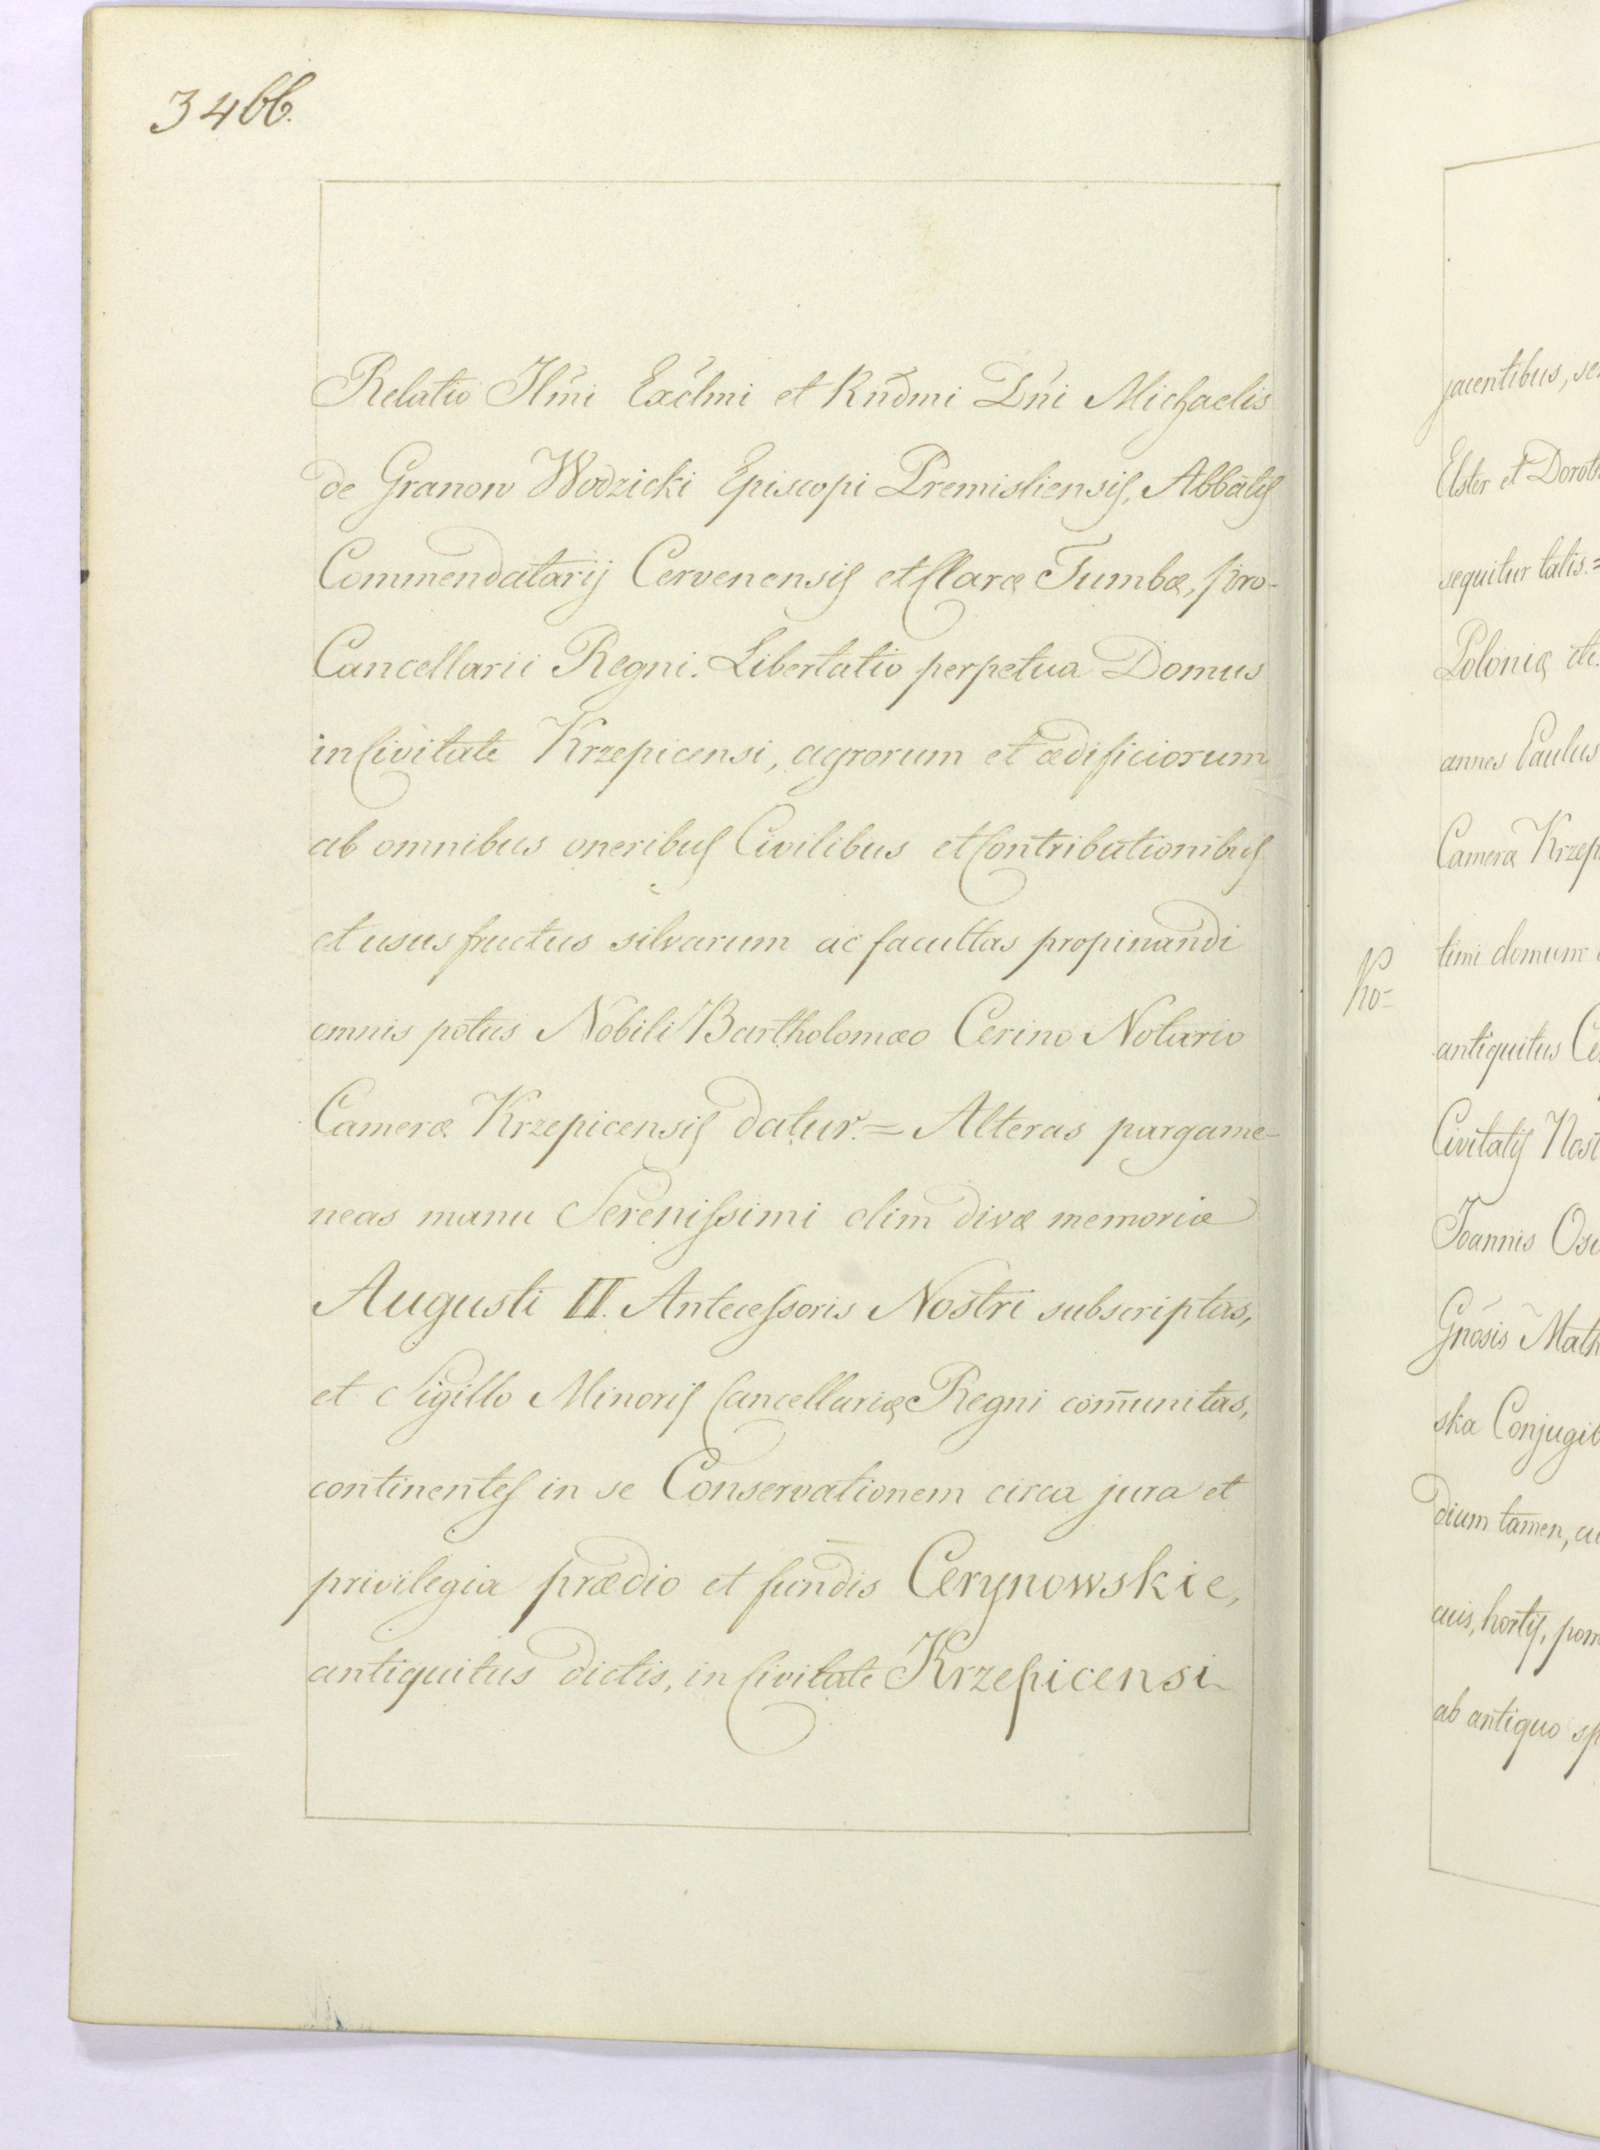 3466.
Relatio Illmi Exclmi et Rndmi Dni Michaelis
de Granow Wodzicki Episcopi Premisliensis, Abbatis
Commendatarij Cervenensis et Claræ Tumbæ, pro-
Cancellarii Regni. Libertatio perpetua Domus
in Civitate Krzepicensi, agrorum et ædificiorum
ab omnibus oneribus Civilibus et Contributionibus
et usus fructus silvarum ac facultas propinandi
omnis potus Nobili Bartholomæo Cerino Notario
Cameræ Krzepicensis datur. = Alteras pargame-
neas manu Serenissimi olim divæ memoriæ
Augusti II. Antecessoris Nostri subscriptas,
et Sigillo Minoris Cancellariæ Regni com̄unitas,
continentes in se Conservationem circa jura et
privilegia prædio et fundis Cerynowskie,
antiquitus dictis, in Civitate Krzepicensi
jacentibus,
Elster et
sequitur talis. =
Poloniæ
annes Paulus
Camera
timi domum
antiquitus
Civitatis
Joannis
Gnosis
ska
dium tamen,
cuis, hortis,
ab antiquo